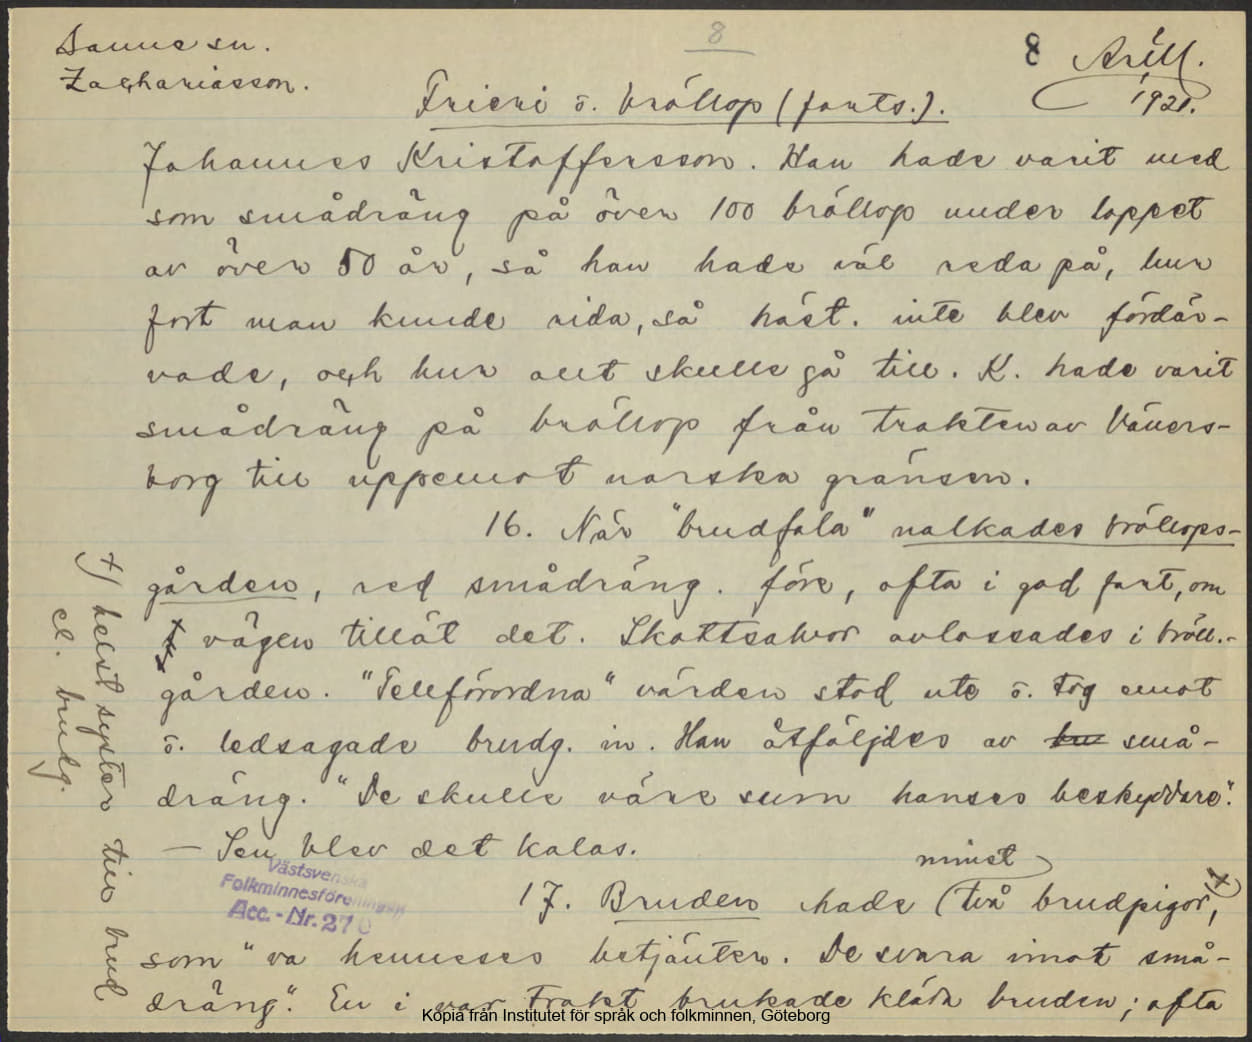 Samme sn.
Zachariasson.
8
8 Arill.
1921.
Frieri o. bröllop (forts.).
Johannes Kristoffersson. Han hade varit med
som smådräng på över 100 bröllop under loppet
av över 50 år, så han hade väl reda på, hur
fort man kunde rida, så häst. inte blev fördär-
vade, och hur allt skulle gå till. K. hade varit
smådräng på bröllop från trakten av Väners-
borg till uppemot norska gränsen.
16. När "brudfola" nalkades bröllops-
gården, red smådräng. före, ofta i god fart, om
vägen tillät det. Skottsalvor avlossades i bröll.-
gården. "Teleförordna" värden stod ute o. tog emot
o. ledsagade brudg. in. Han åtföljdes av små-
dräng. "De skulle väre sum hanses beskyddare".
— Sen blev det kalas.
17. Bruden hade (minst två brudpigor, +)
som "va henneses betjänter. De svara imot små-
dräng". En i var trakt brukade kläda bruden; ofta
+) helst syster till brud
el. brudg.
Västsvenska
Folkminnesföreningen
Acc.-Nr. 270
Kopia från Institutet för språk och folkminnen, Göteborg